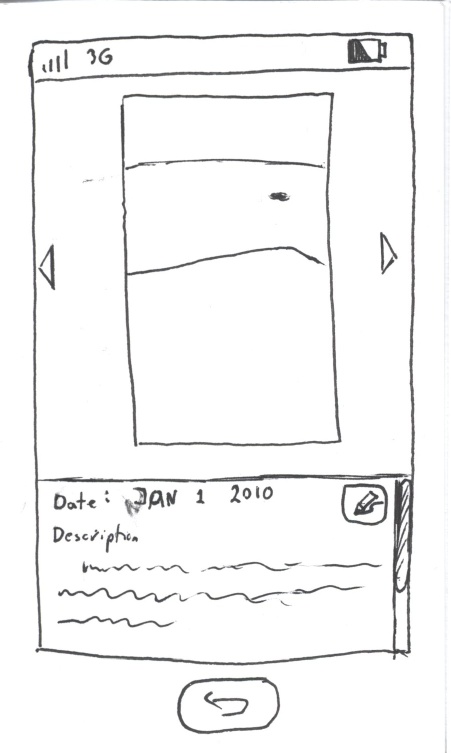 3G
Date: JAN 1 2010
Description